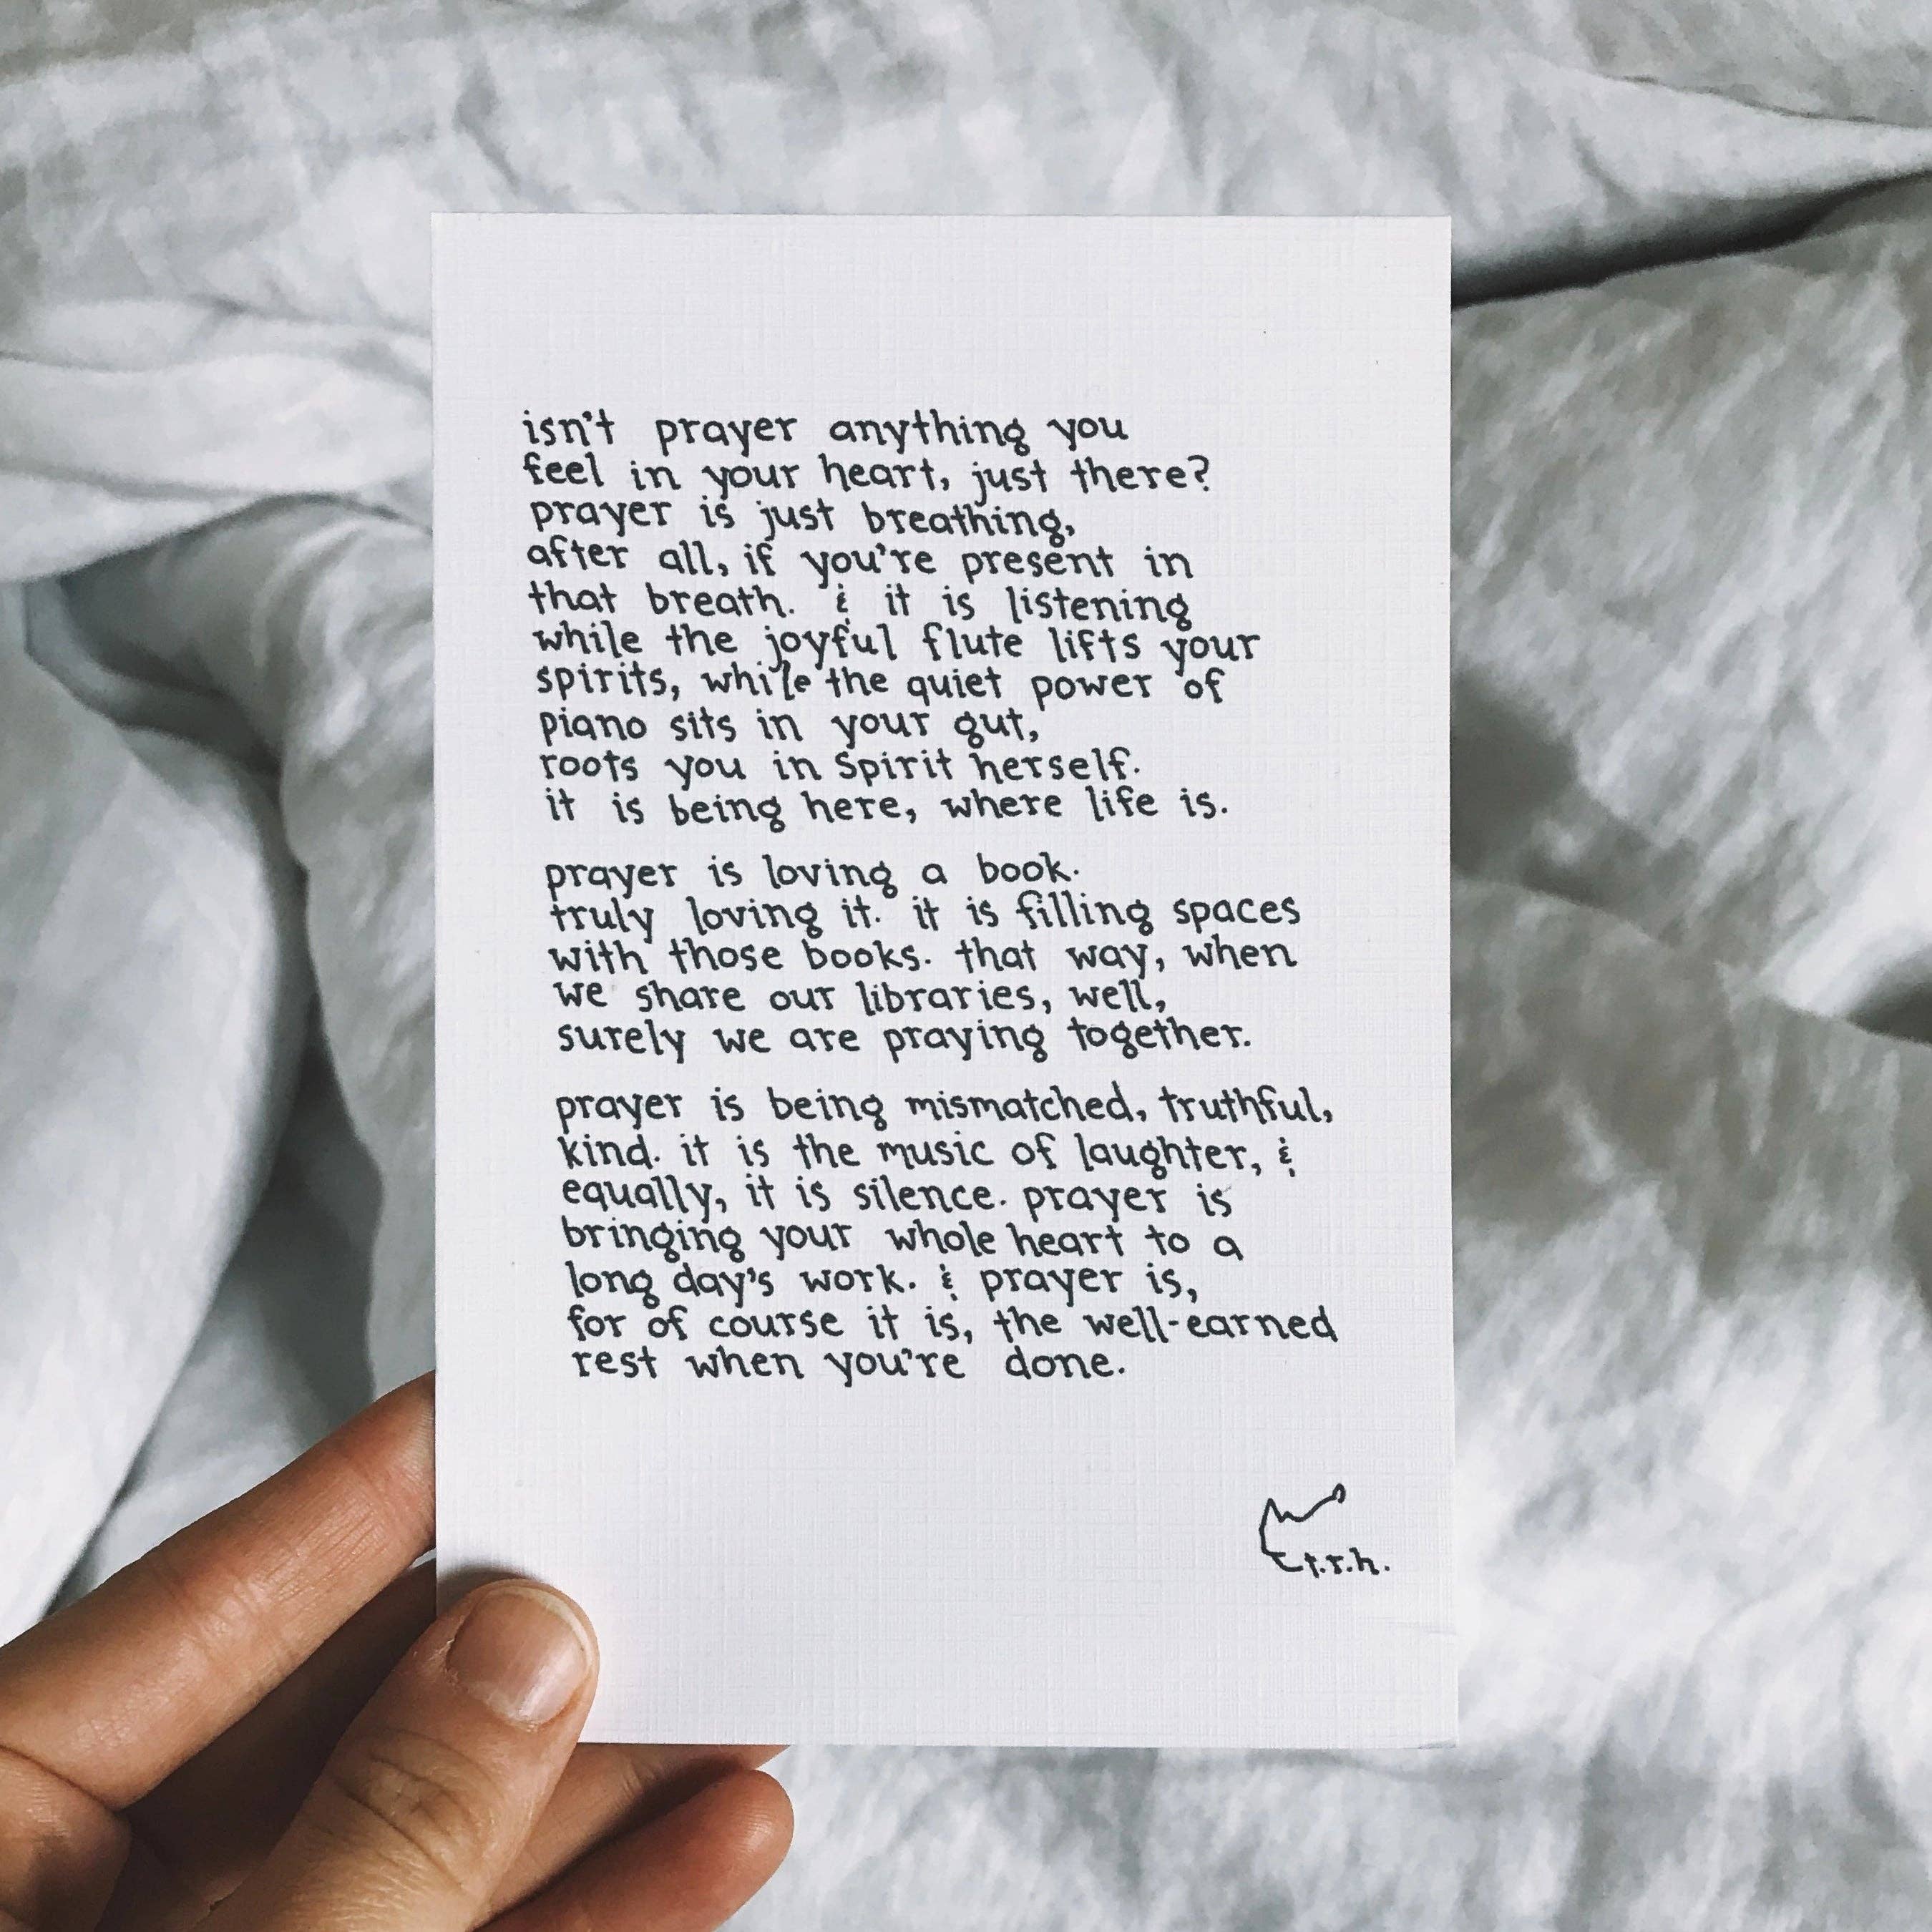 isn't prayer anything you
feel in your heart, just there?
prayer is just breathing,
after all, if you're present in
that breath. & it is listening
while the joyful flute lifts your
spirits, while the quiet power of
piano sits in your gut,
roots you in Spirit herself.
it is being here, where life is.
prayer is loving a book.
truly loving it. it is filling spaces
with those books. that way, when
we share our libraries, well,
surely we are praying together.
prayer is being mismatched, truthful,
kind. it is the music of laughter, &
equally, it is silence. prayer is
bringing your whole heart to a
long day's work. & prayer is,
for of course it is, the well-earned
rest when you're done.
t.r.h.